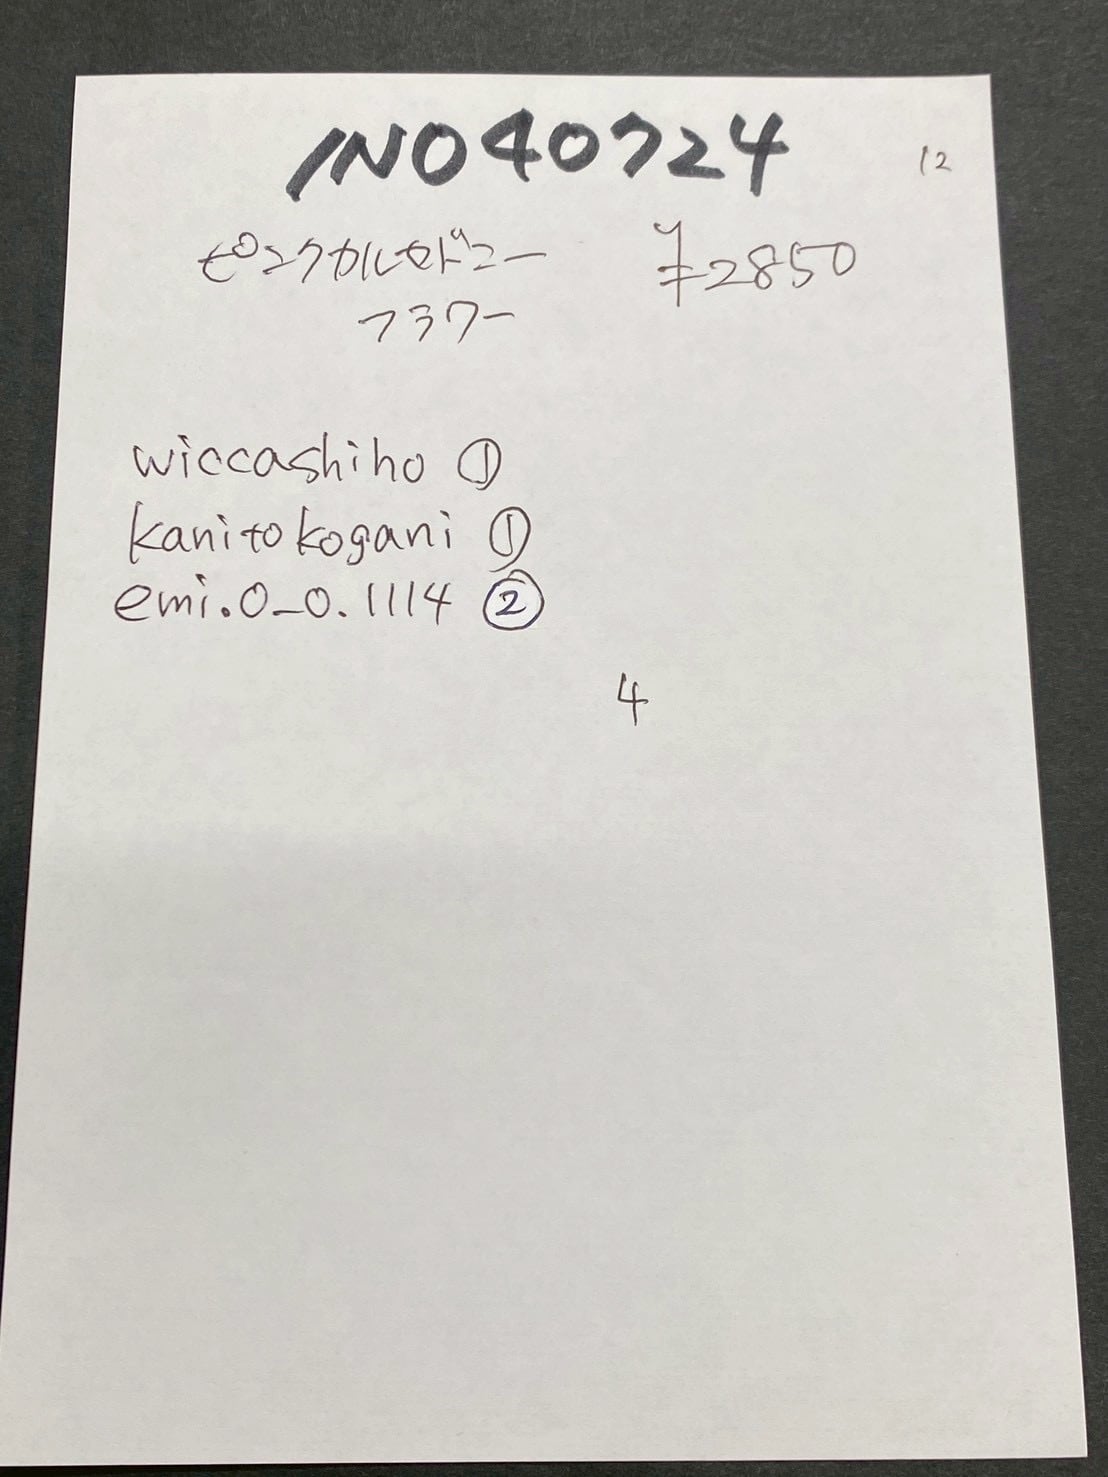 INO40724
12
ピンクカルセドニー ¥2850
フラワー
wiccashiho ①
kanitokogani ①
emi.0_0.1114 ②
4